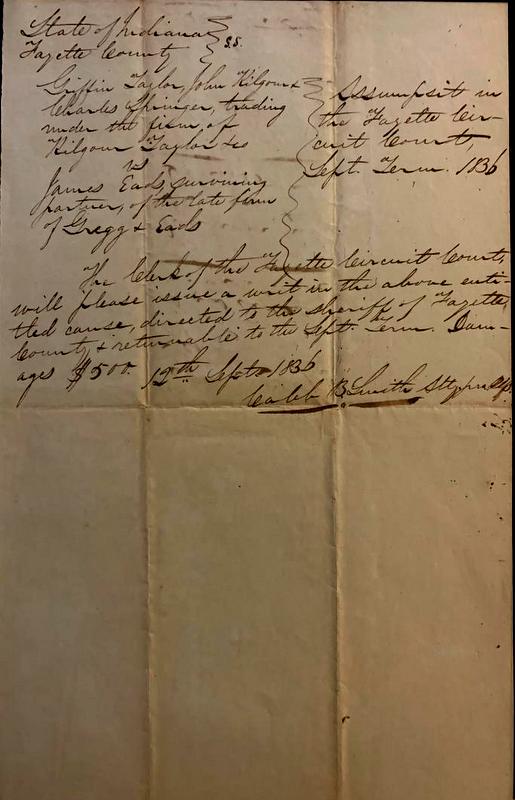 State of Indiana
Fayette County
SS.
Griffin Taylor, John Kilgour &
Charles Springer, trading
under the firm of
Kilgour Taylor & Co
vs
James Eads, surviving
partner, of the late firm
of Gregg & Eads
Assumpsit in
the Fayette Cir-
cuit Court,
Sept. Term. 1836
The Clerk of the Fayette Circuit Court,
will please issue a writ in the above enti-
tled cause, directed to the sheriff of Fayette
County & returnable to the Sept. Term. Dam-
ages $500. 12th Sept 1836
Caleb B. Smith Atty